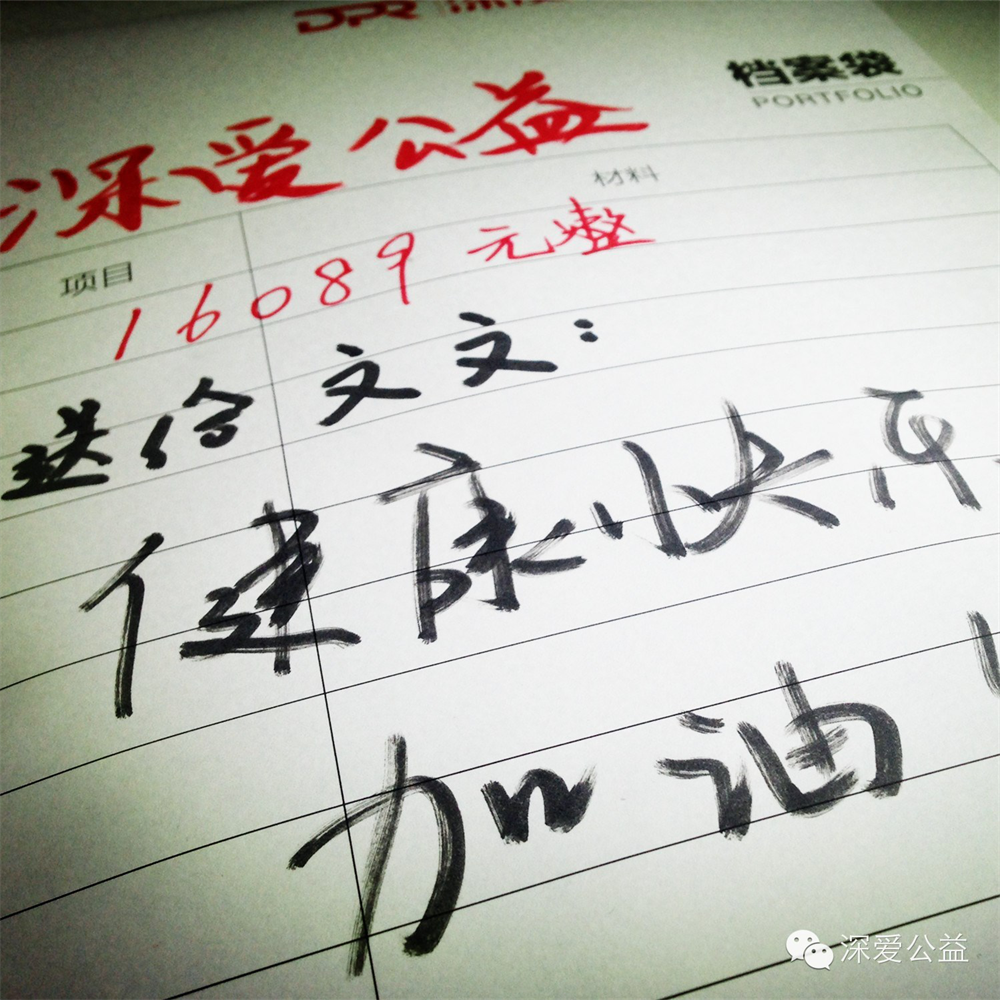 DPR
档案袋
PORTFOLIO
深爱公益
项目
材料
16089元整
送给文文：
健康快乐
加油！
深爱公益